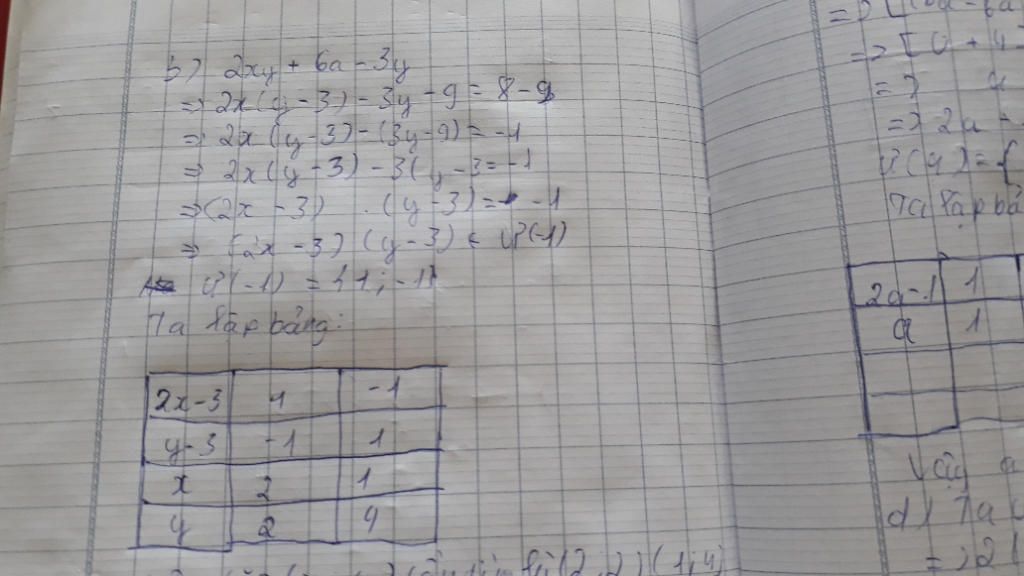 b) 2xy + 6a - 3y
=> 2x(y-3) - 3y - 9 = 8 - 9
=> 2x (y-3) - (3y-9) = -1
=> 2x(y-3) - 3(y-3 = -1
=> (2x - 3) . (y-3) = -1
=> (2x - 3) (y-3) ∈ Ư(-1)
Ư(-1) = {1; -1}
Ta lập bảng:
2x-3 1 -1
y-3 -1 1
x 2 1
y 2 4
(2;2) (1;4)
=> [0 + 4
=>
=> 2a -
Ư(4) = {
Ta lập bả
2a-1 1
a 1
Vậy a
d) Ta
=> 2(